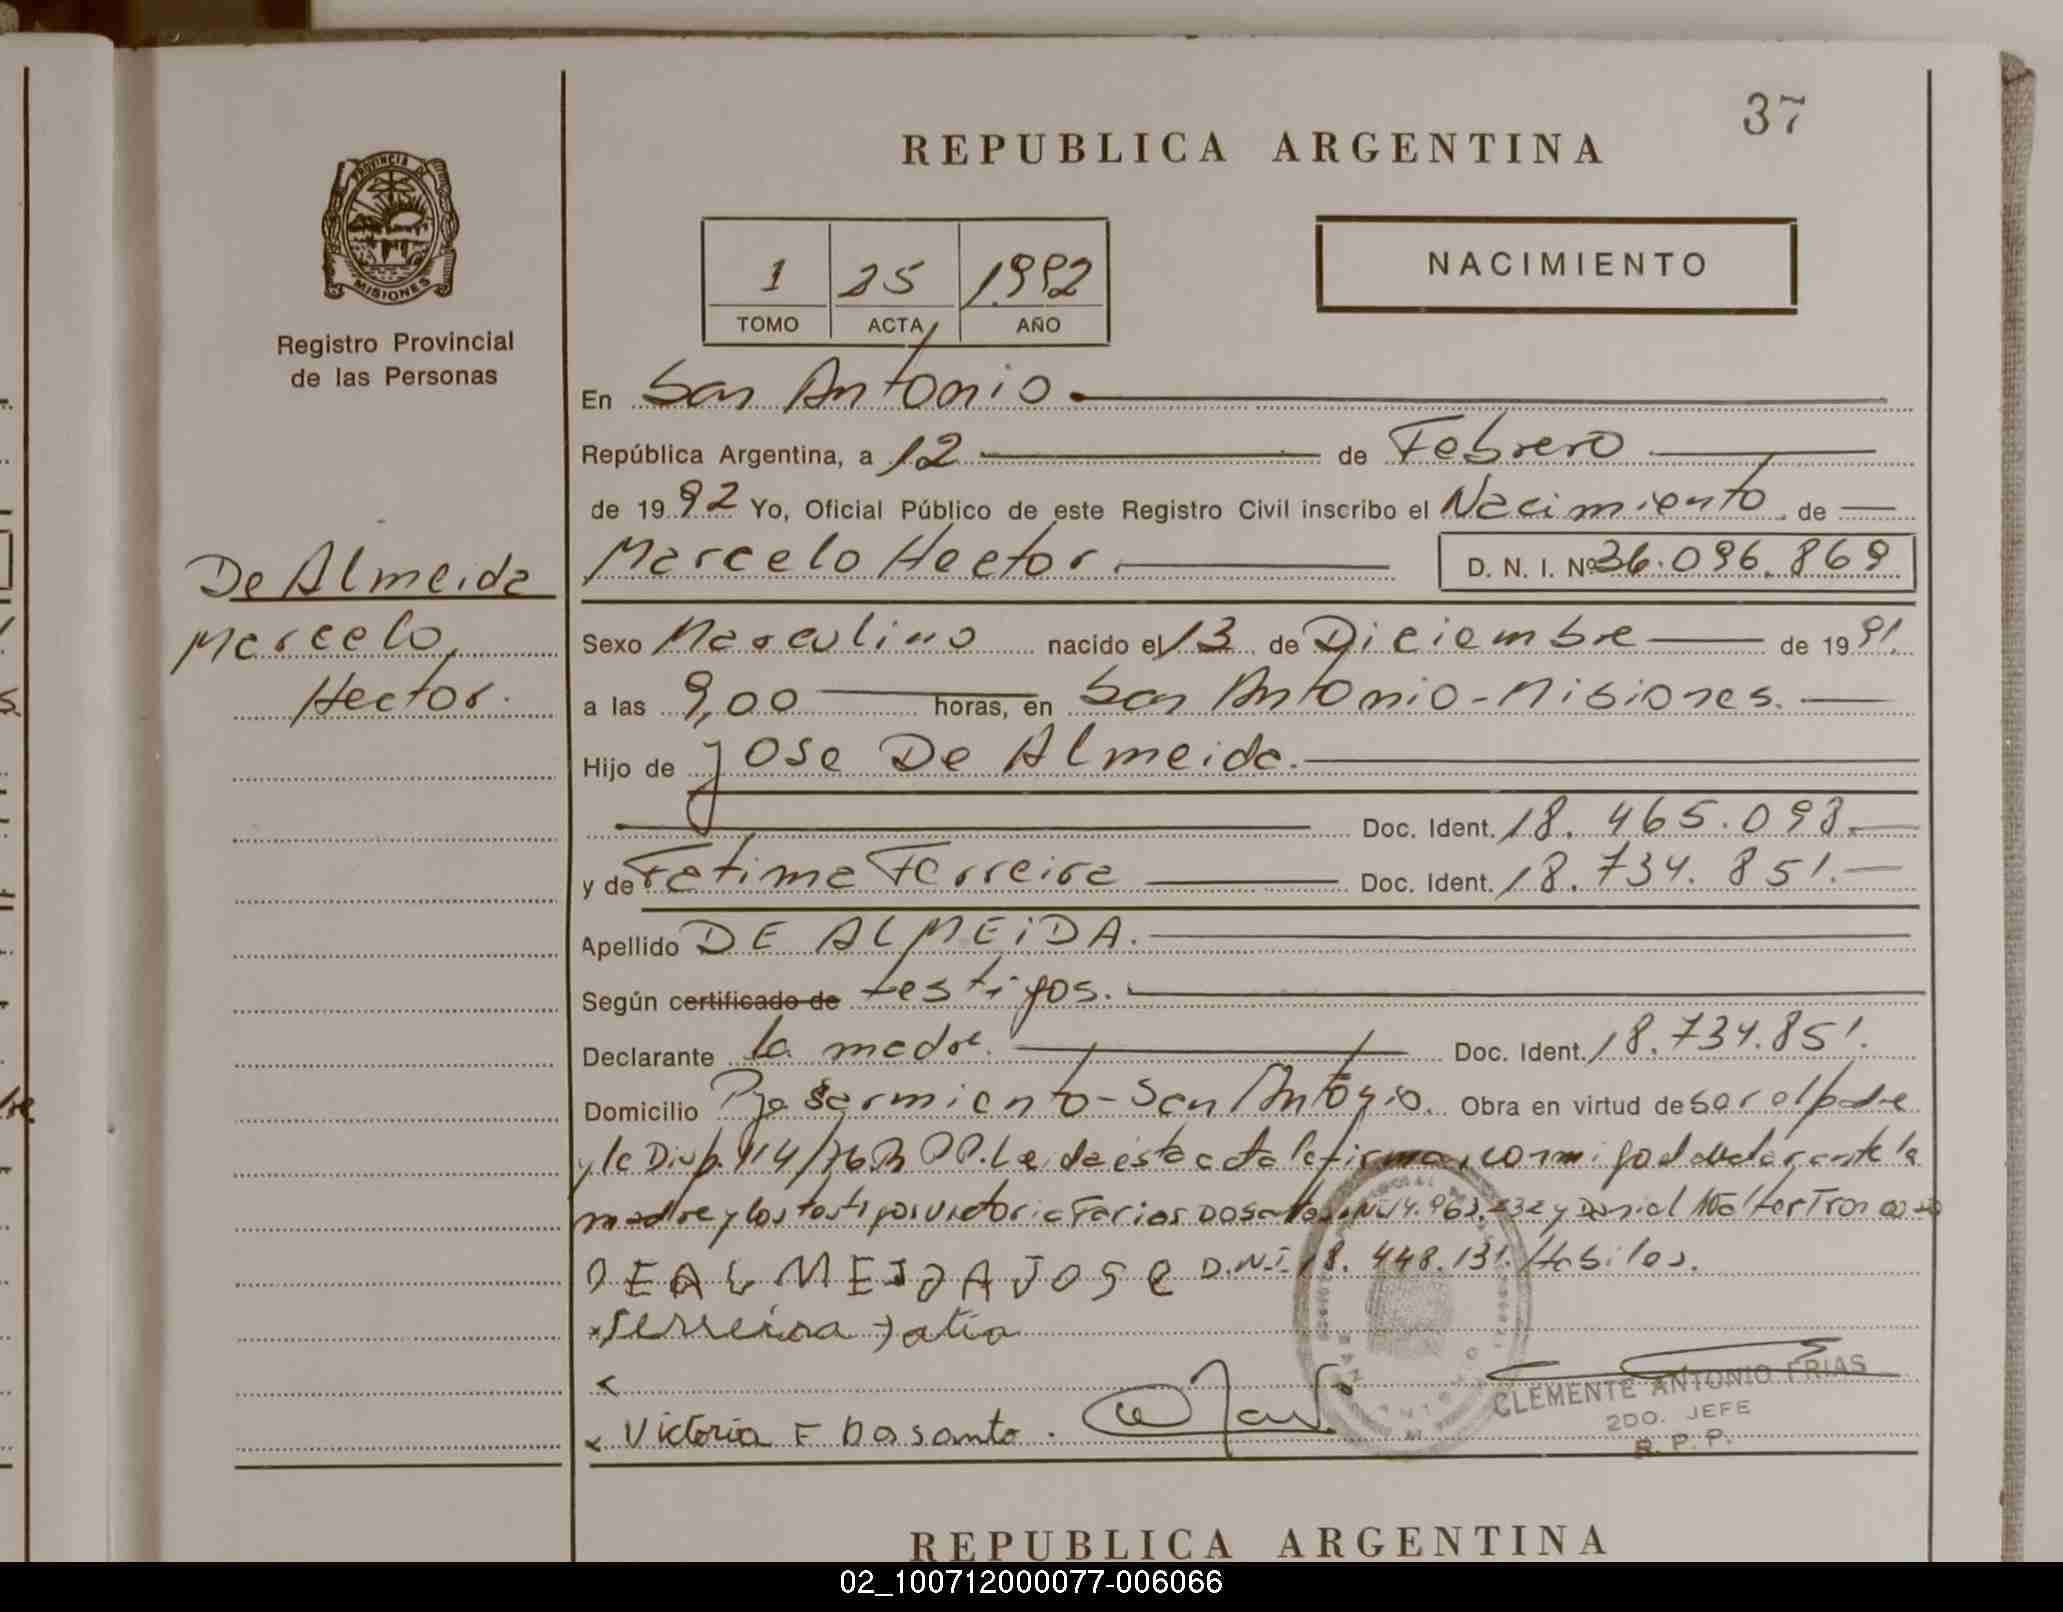 37
REPUBLICA ARGENTINA
PROVINCIA DE
MISIONES
Registro Provincial
de las Personas
1 25 1992
TOMO ACTA AÑO
NACIMIENTO
En San Antonio
República Argentina, a 12 de Febrero
de 1992 Yo, Oficial Público de este Registro Civil inscribo el Nacimiento de
Marcelo Hector. D. N. I. Nº 36.096.869
De Almeida
Marcelo
Hector.
Sexo Masculino nacido el 13 de Diciembre de 1991.
a las 9,00 horas, en San Antonio - Misiones.
Hijo de Jose De Almeida.
Doc. Ident. 18.465.093.
y de Fatima Ferreira Doc. Ident. 18.734.851.
Apellido DE ALMEiDA.
Según certificado de testigos.
Declarante la madre. Doc. Ident. 18.734.851.
Domicilio Pje Sarmiento - San Antonio. Obra en virtud de ser el padre
y la Disp. 114/76 Leida esta acta la firman conmigo el declarante la
madre y los testigos Victoria Farias Dosantos y Daniel Walter
D.N.I. 18.448.131. Habiles.
DEALMEIDA JOSE
Ferreira
Victoria F Dosanto.
CLEMENTE ANTONIO FRIAS
2DO. JEFE
R. P. P.
REPUBLICA ARGENTINA
02_100712000077-006066